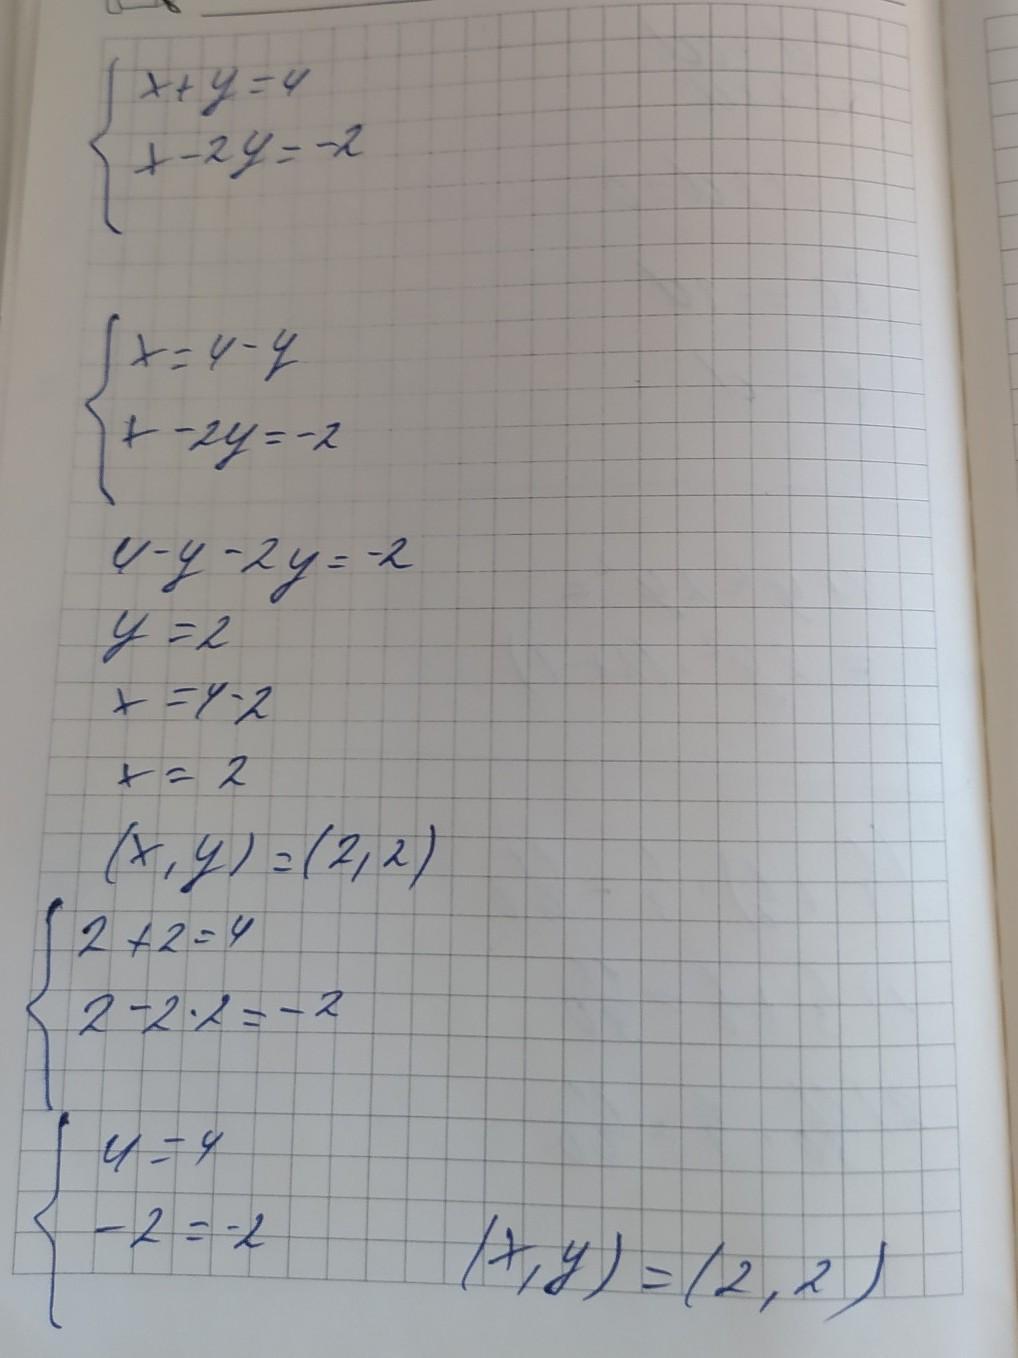 x+y=4
x-2y=-2
x=4-y
x-2y=-2
4-y-2y=-2
y=2
x=4-2
x=2
(x,y)=(2,2)
2+2=4
2-2·2=-2
4=4
-2=-2
(x,y)=(2,2)